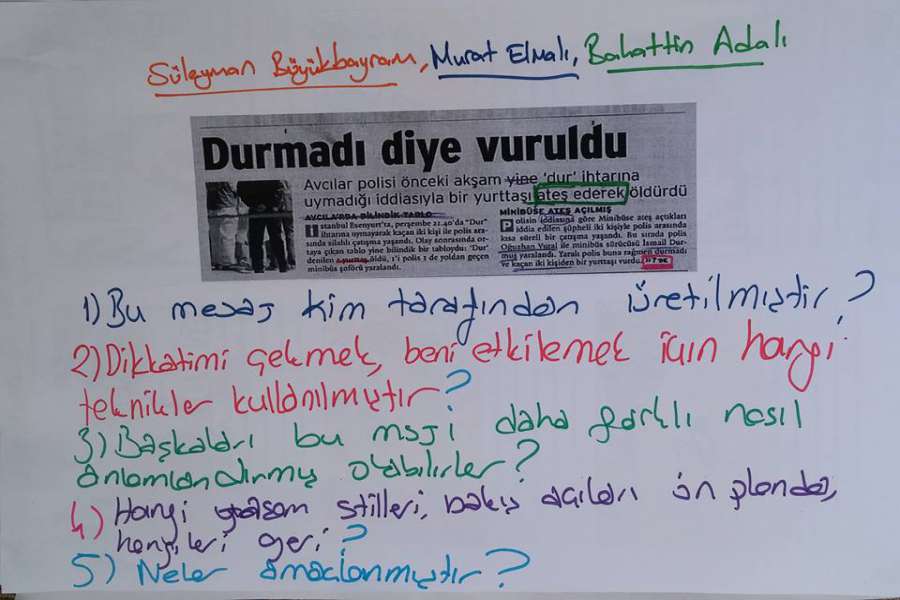 Süleyman Büyükbayram, Murat Elmalı, Bahattin Adalı
Durmadı diye vuruldu
Avcılar polisi önceki akşam yine 'dur' ihtarına
uymadığı iddiasıyla bir yurttaşı ateş ederek öldürdü
AVCILAR'DA BİLİNDİK TABLO
İstanbul Esenyurt'ta, perşembe 21.40'da "Dur"
ihtarına uymayarak kaçan iki kişi ile polis ara-
sında silahlı çatışma yaşandı. Olay sonrasında or-
taya çıkan tablo yine bilindik bir tabloydu: 'Dur'
denilen öldü, 1'i polis 1 de yoldan geçen
minibüs şoförü yaralandı.
MİNİBÜSE ATEŞ AÇILMIŞ
Polisin iddiasına göre Minibüse ateş açtıkları
iddia edilen şüpheli iki kişiyle polis arasında
kısa süreli bir çatışma yaşandı. Bu sırada polis
Oğuzhan Vural ile minibüs sürücüsü İsmail Dur-
muş yaralandı. Yaralı polis buna rağmen durmadı
ve kaçan iki kişiden bir yurttaşı vurdu.
1) Bu mesaj kim tarafından üretilmiştir?
2) Dikkatimi çekmek, beni etkilemek için hangi
teknikler kullanılmıştır?
3) Başkaları bu msjı daha farklı nasıl
anlamlandırmış olabilirler?
4) Hangi yaşam stilleri, bakış açıları ön planda,
hangileri geri?
5) Neler amaçlanmıştır?